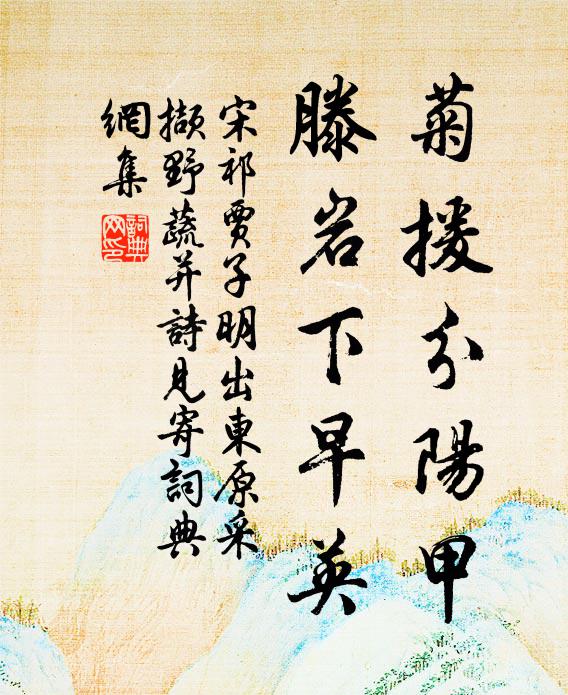 菊援分陽甲
滕岩下早英
宋祁賈子明出東原采
擷野蔬并詩見寄詞典
網集
詞典
網印